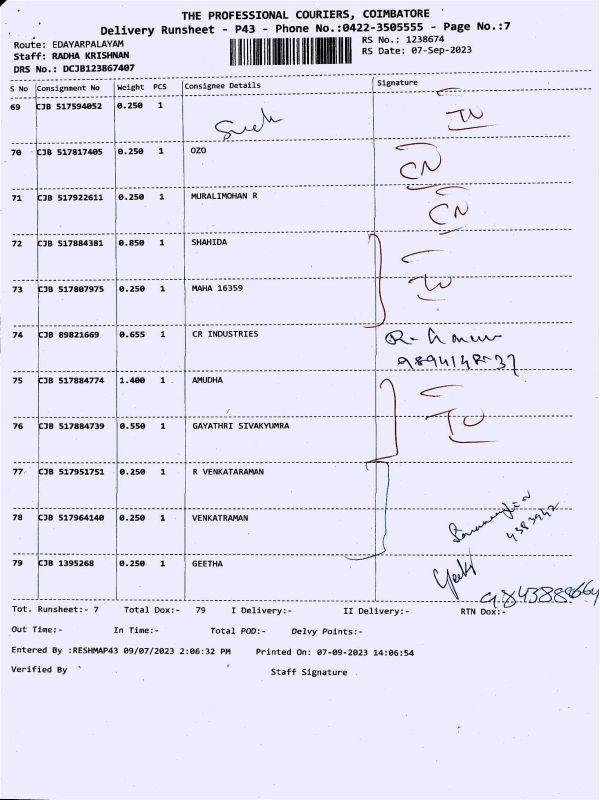 THE PROFESSIONAL COURIERS, COIMBATORE
Delivery Runsheet - P43 - Phone No.:0422-3505555 - Page No.:7
Route: EDAYARPALAYAM
RS No.: 1238674
Staff: RADHA KRISHNAN
RS Date: 07-Sep-2023
DRS No.: DCJB123867407
S No Consignment No Weight PCS Consignee Details Signature
69 CJB 517594052 0.250 1
70 CJB 517817405 0.250 1 OZO CN
71 CJB 517922611 0.250 1 MURALIMOHAN R CN
72 CJB 517884381 0.850 1 SHAHIDA
73 CJB 517807975 0.250 1 MAHA 16359
74 CJB 89821669 0.655 1 CR INDUSTRIES
75 CJB 517884774 1.400 1 AMUDHA
76 CJB 517884739 0.550 1 GAYATHRI SIVAKYUMRA
77 CJB 517951751 0.250 1 R VENKATARAMAN
78 CJB 517964140 0.250 1 VENKATRAMAN
79 CJB 1395268 0.250 1 GEETHA
Tot. Runsheet:- 7 Total Dox:- 79 I Delivery:- II Delivery:- RTN Dox:-
Out Time:- In Time:- Total POD:- Delvy Points:-
Entered By :RESHMAP43 09/07/2023 2:06:32 PM Printed On: 07-09-2023 14:06:54
Verified By Staff Signature